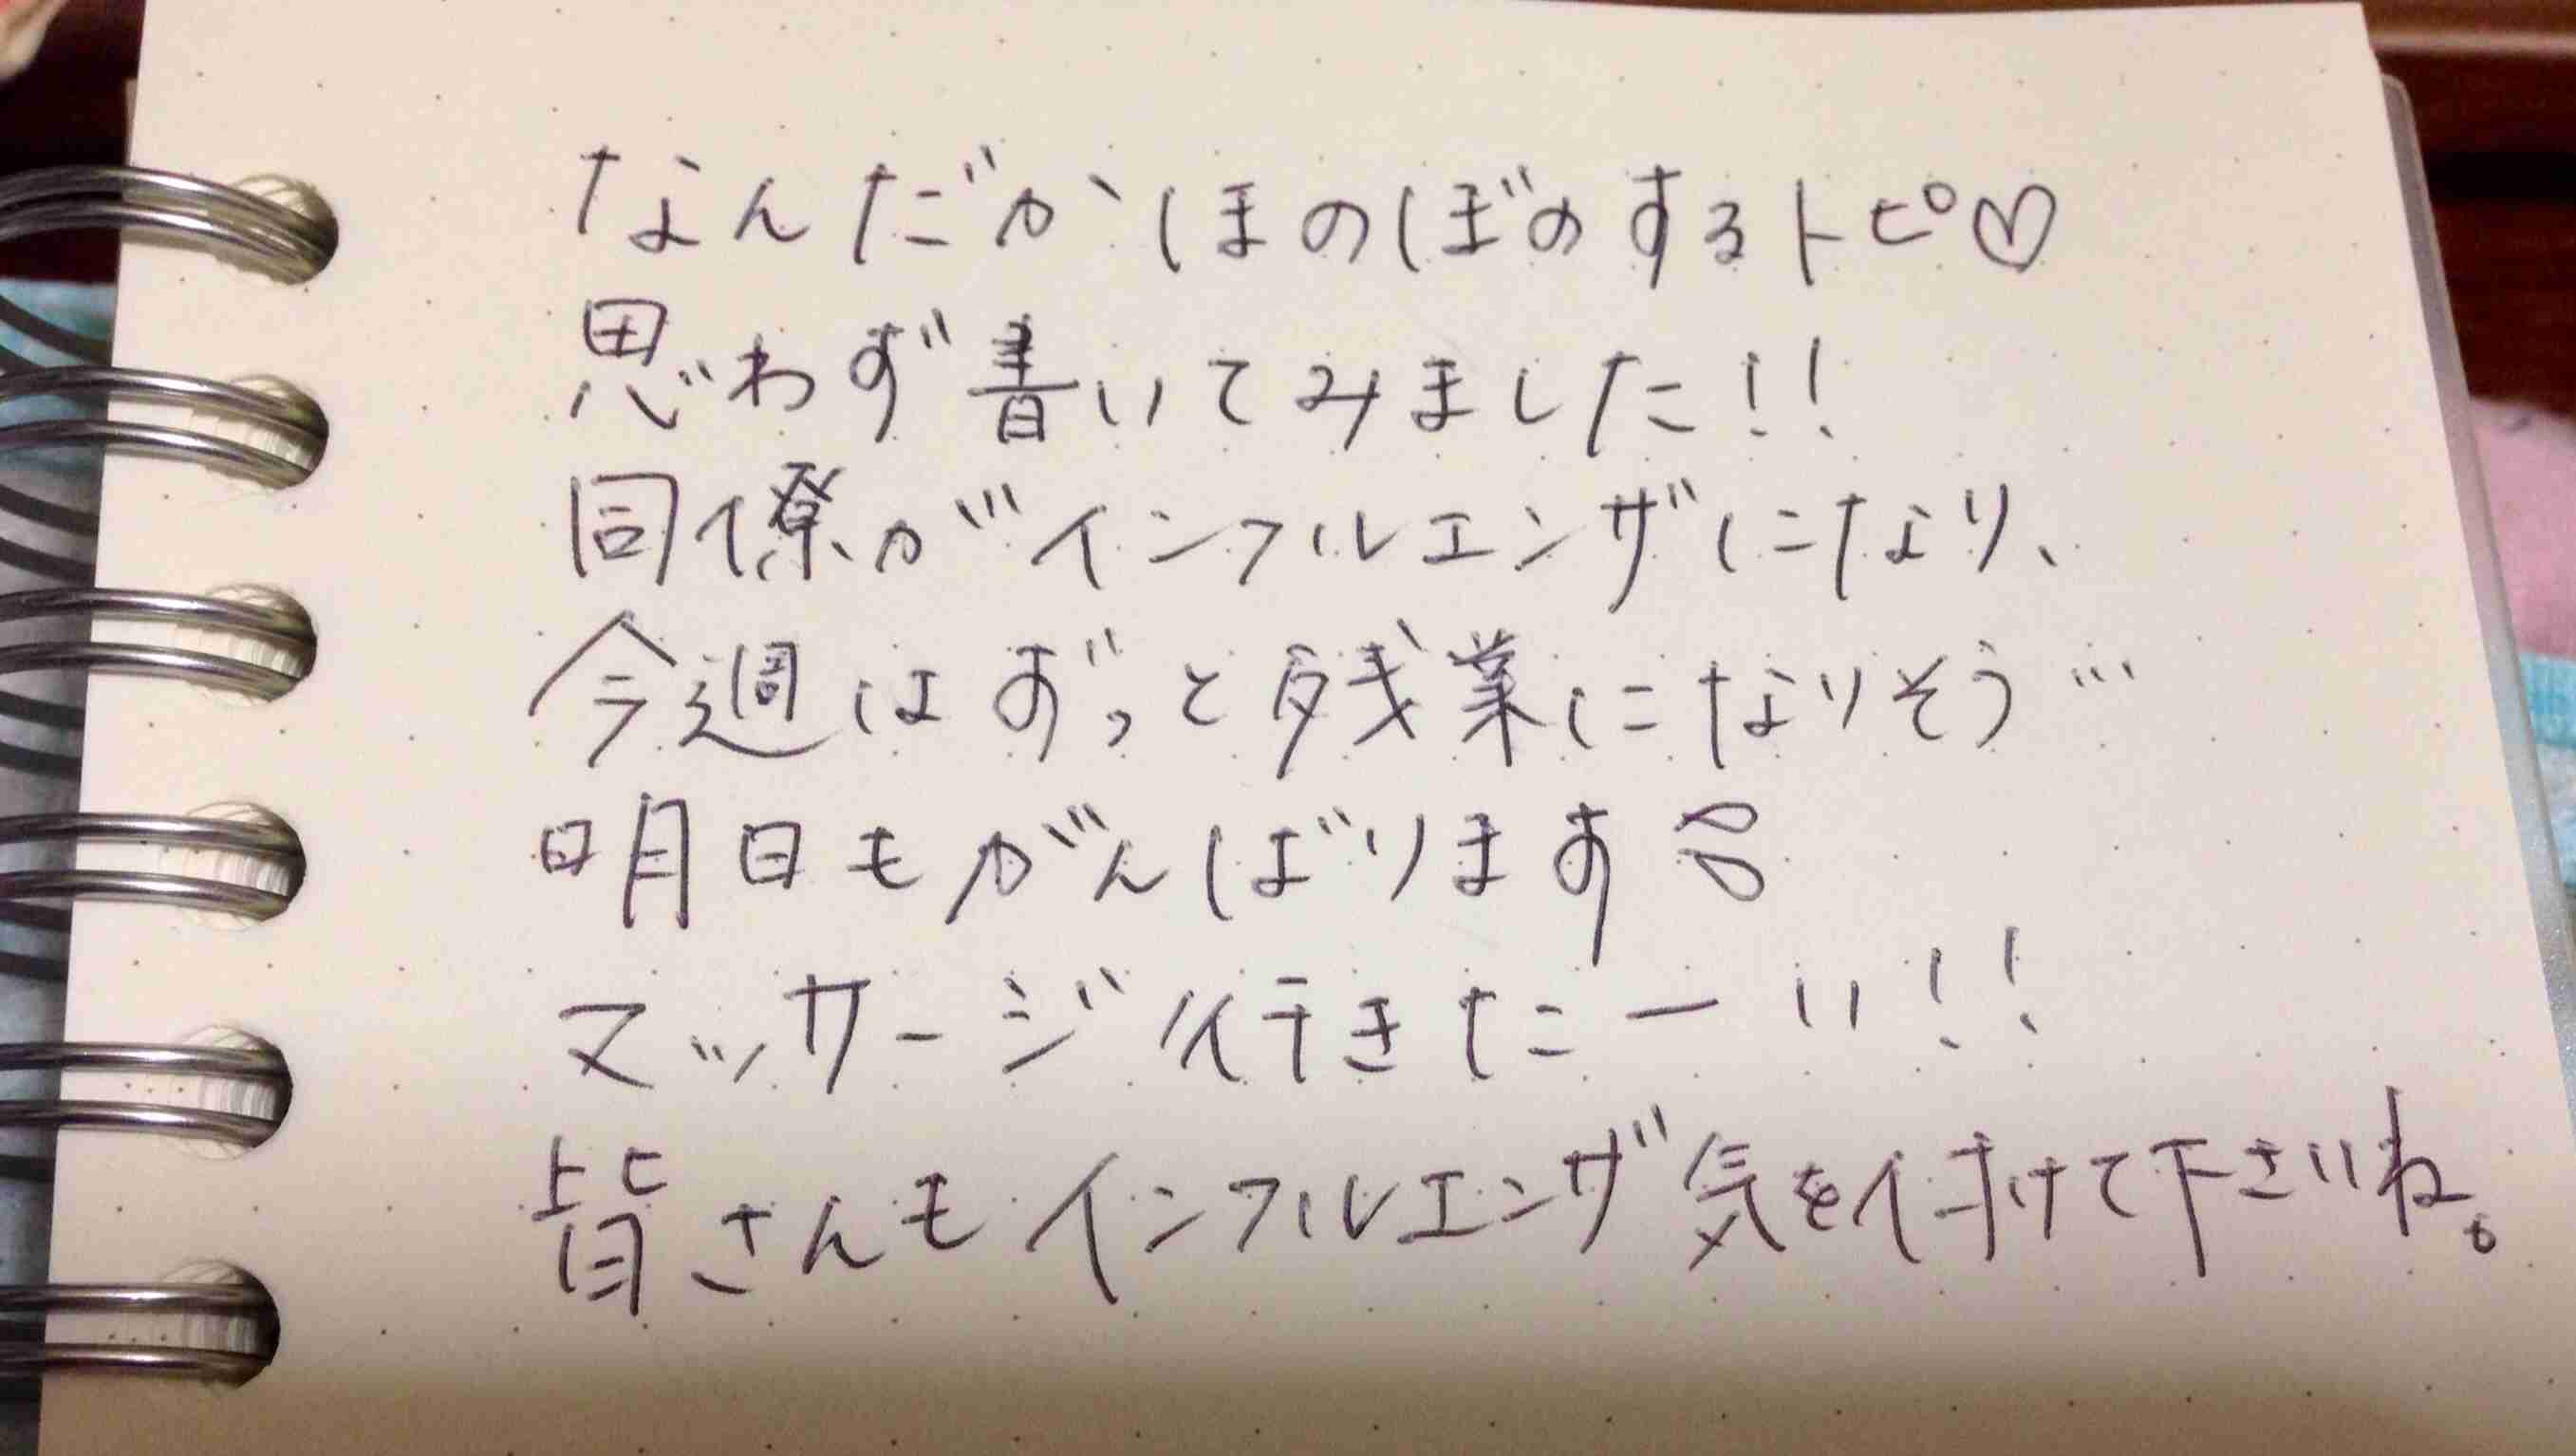 なんだかほのぼのするトピ♡
思わず書いてみました!!
同僚がインフルエンザになり、
今週はずっと残業になりそう…
明日もがんばります
マッサージ行きたーい!!
皆さんもインフルエンザ気を付けて下さいね。